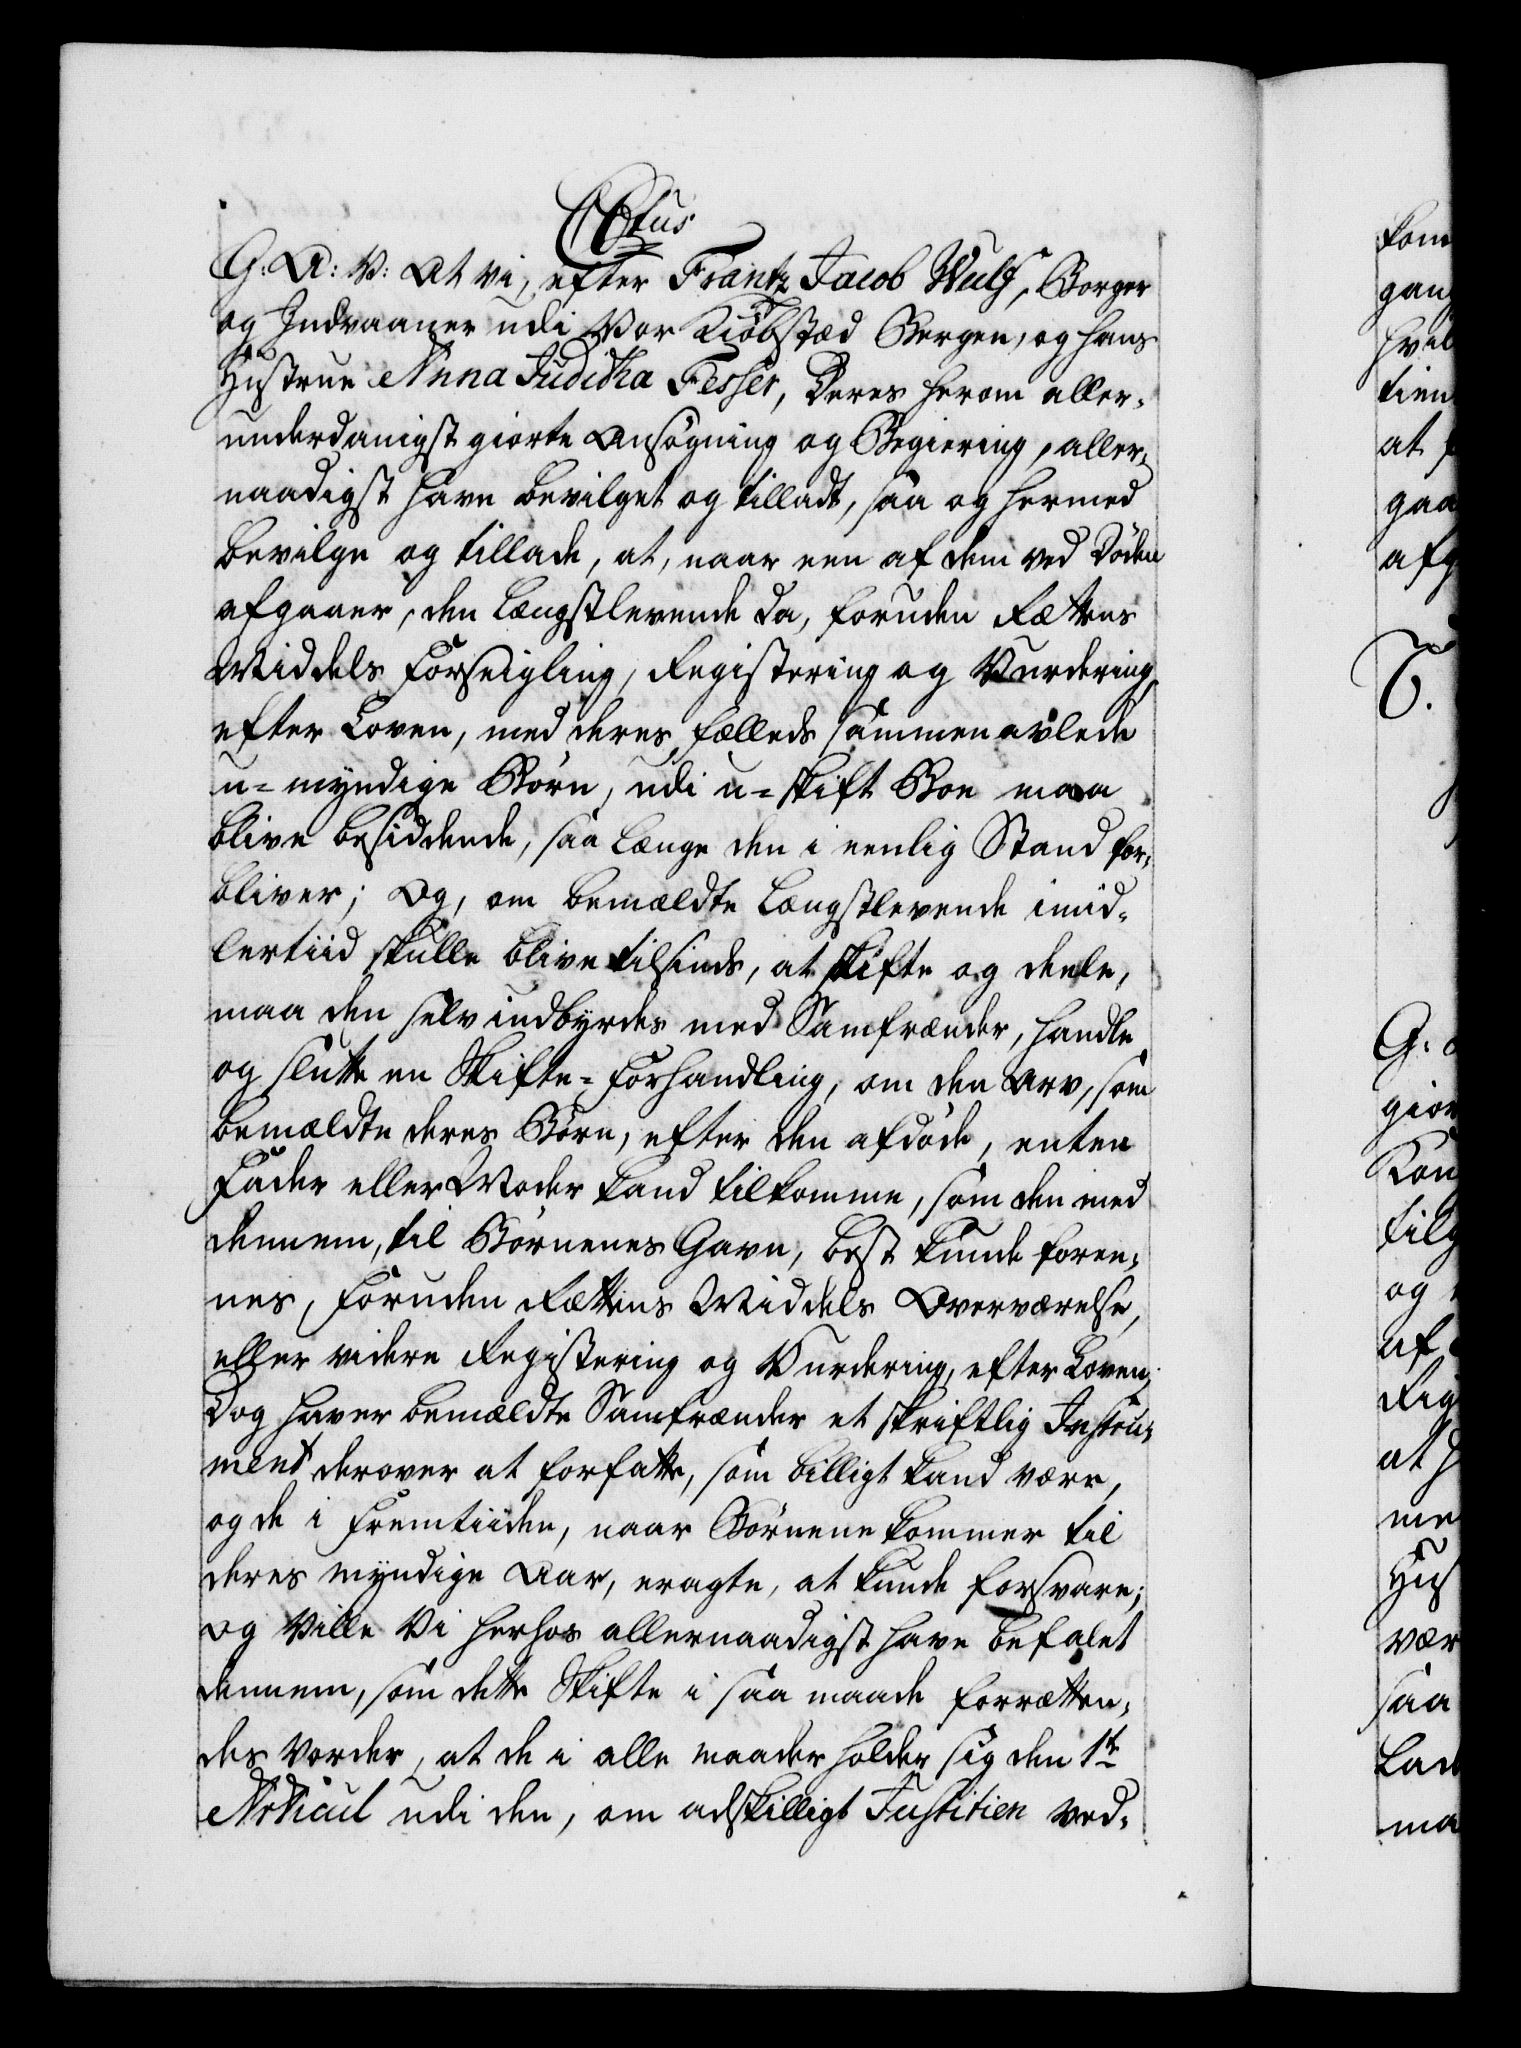 C6tus
G: A: V: At vi, efter Frantz Jacob Wulf, Borger
og Indvaaner udi Vor Kiøbstæd Bergen, og hans
Hustrue Anna Juditha Fesser, Deres herom aller-
underdanigst giorte Ansøgning og Begiering, aller-
naadigst have bevilget og tilladt, saa og hermed
bevilge og tillade, at, naar een af dem ved Døden
afgaaer, den Længstlevende da, foruden Rættens
Middels Forseigling, Registering og Vurdering,
efter Loven, med deres fælleds sammen avlede
u-myndige Børn, udi u-skift Boe maa
blive besiddende, saa længe den i eenlig Stand for-
bliver; Og, om bemældte Længstlevende imid-
lertiid skulle blive tilsinds, at skifte og deele,
maa den selv indbyrdes med Samfrænder, handle
og slutte en Skifte-Forhandling, om den Arv, som
bemældte deres Børn, efter den afdøde, enten
Fader eller Moder kand tilkomme, som den med
dennem, til Børnenes Gavn, best kunde foree-
nes, foruden Rættens Middels Overværelse,
eller videre Registering og Vurdering, efter Loven;
Dog haver bemældte Samfrænder et skriftlig Instru-
ment derover at forfatte, som billigt kand være,
og de i Fremtiiden, naar Børnene kommer til
deres myndige Aar, eragte, at kunde forsvare;
Og Ville Vi herhos allernaadigst have befalet
dennem, som dette Skifte i saa maade forretten-
des vorder, at de i alle maader holder sig den 1te
Articul udi den, om adskilligt Justitien ved-